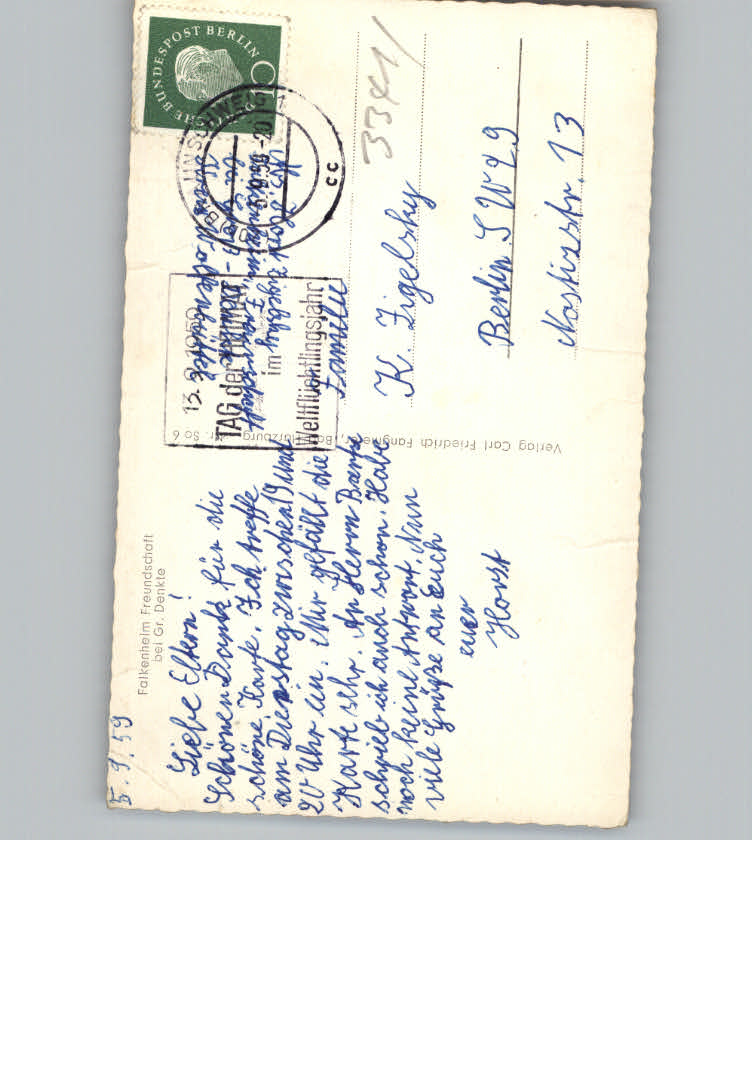 5.9.59
Falkenheim Freundschaft
bei Gr. Denkte
Liebe Eltern!
Schönen Dank für die
schöne Karte. Ich treffe
am Dienstag zwischen 19 und
20 Uhr ein. Mir gefällt die
Karte sehr. An Herrn
schrieb ich auch schon. Habe
noch keine Antwort. Nun
viele Grüße an Euch
euer
Horst
Verlag Carl Friedrich Fangmeier, Bad Harzburg
DEUTSCHE BUNDESPOST BERLIN
BRAUNSCHWEIG
cc
13.9.1959
TAG der HEIMAT
im
Weltflüchtlingsjahr
Abs.: Horst Zigelsky
3341/
Familie
K. Zigelsky
Berlin SW29
Nostizstr. 13